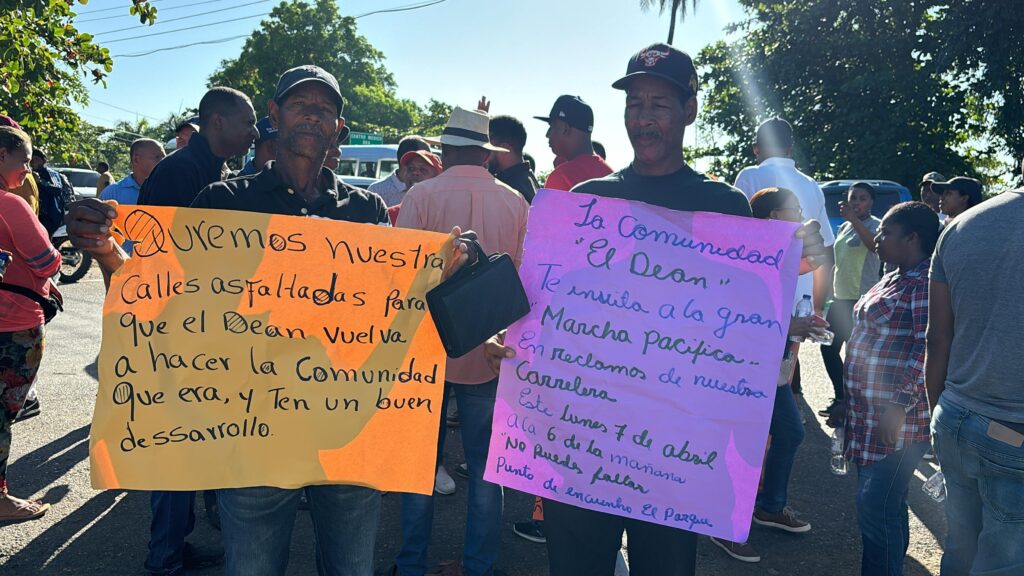 Quremos nuestra
Calles asfaltadas para
que el Dean vuelva
a hacer la Comunidad
Que era, y Ten un buen
dessarrollo.
La Comunidad
"El Dean"
Te insita a la gran
"Marcha pacifica"
En reclamos de nuestra
Carrelera
Este lunes 7 de abril
a la 6 de la mañana
"No puedes faltar
Punto de encuenho El Parque